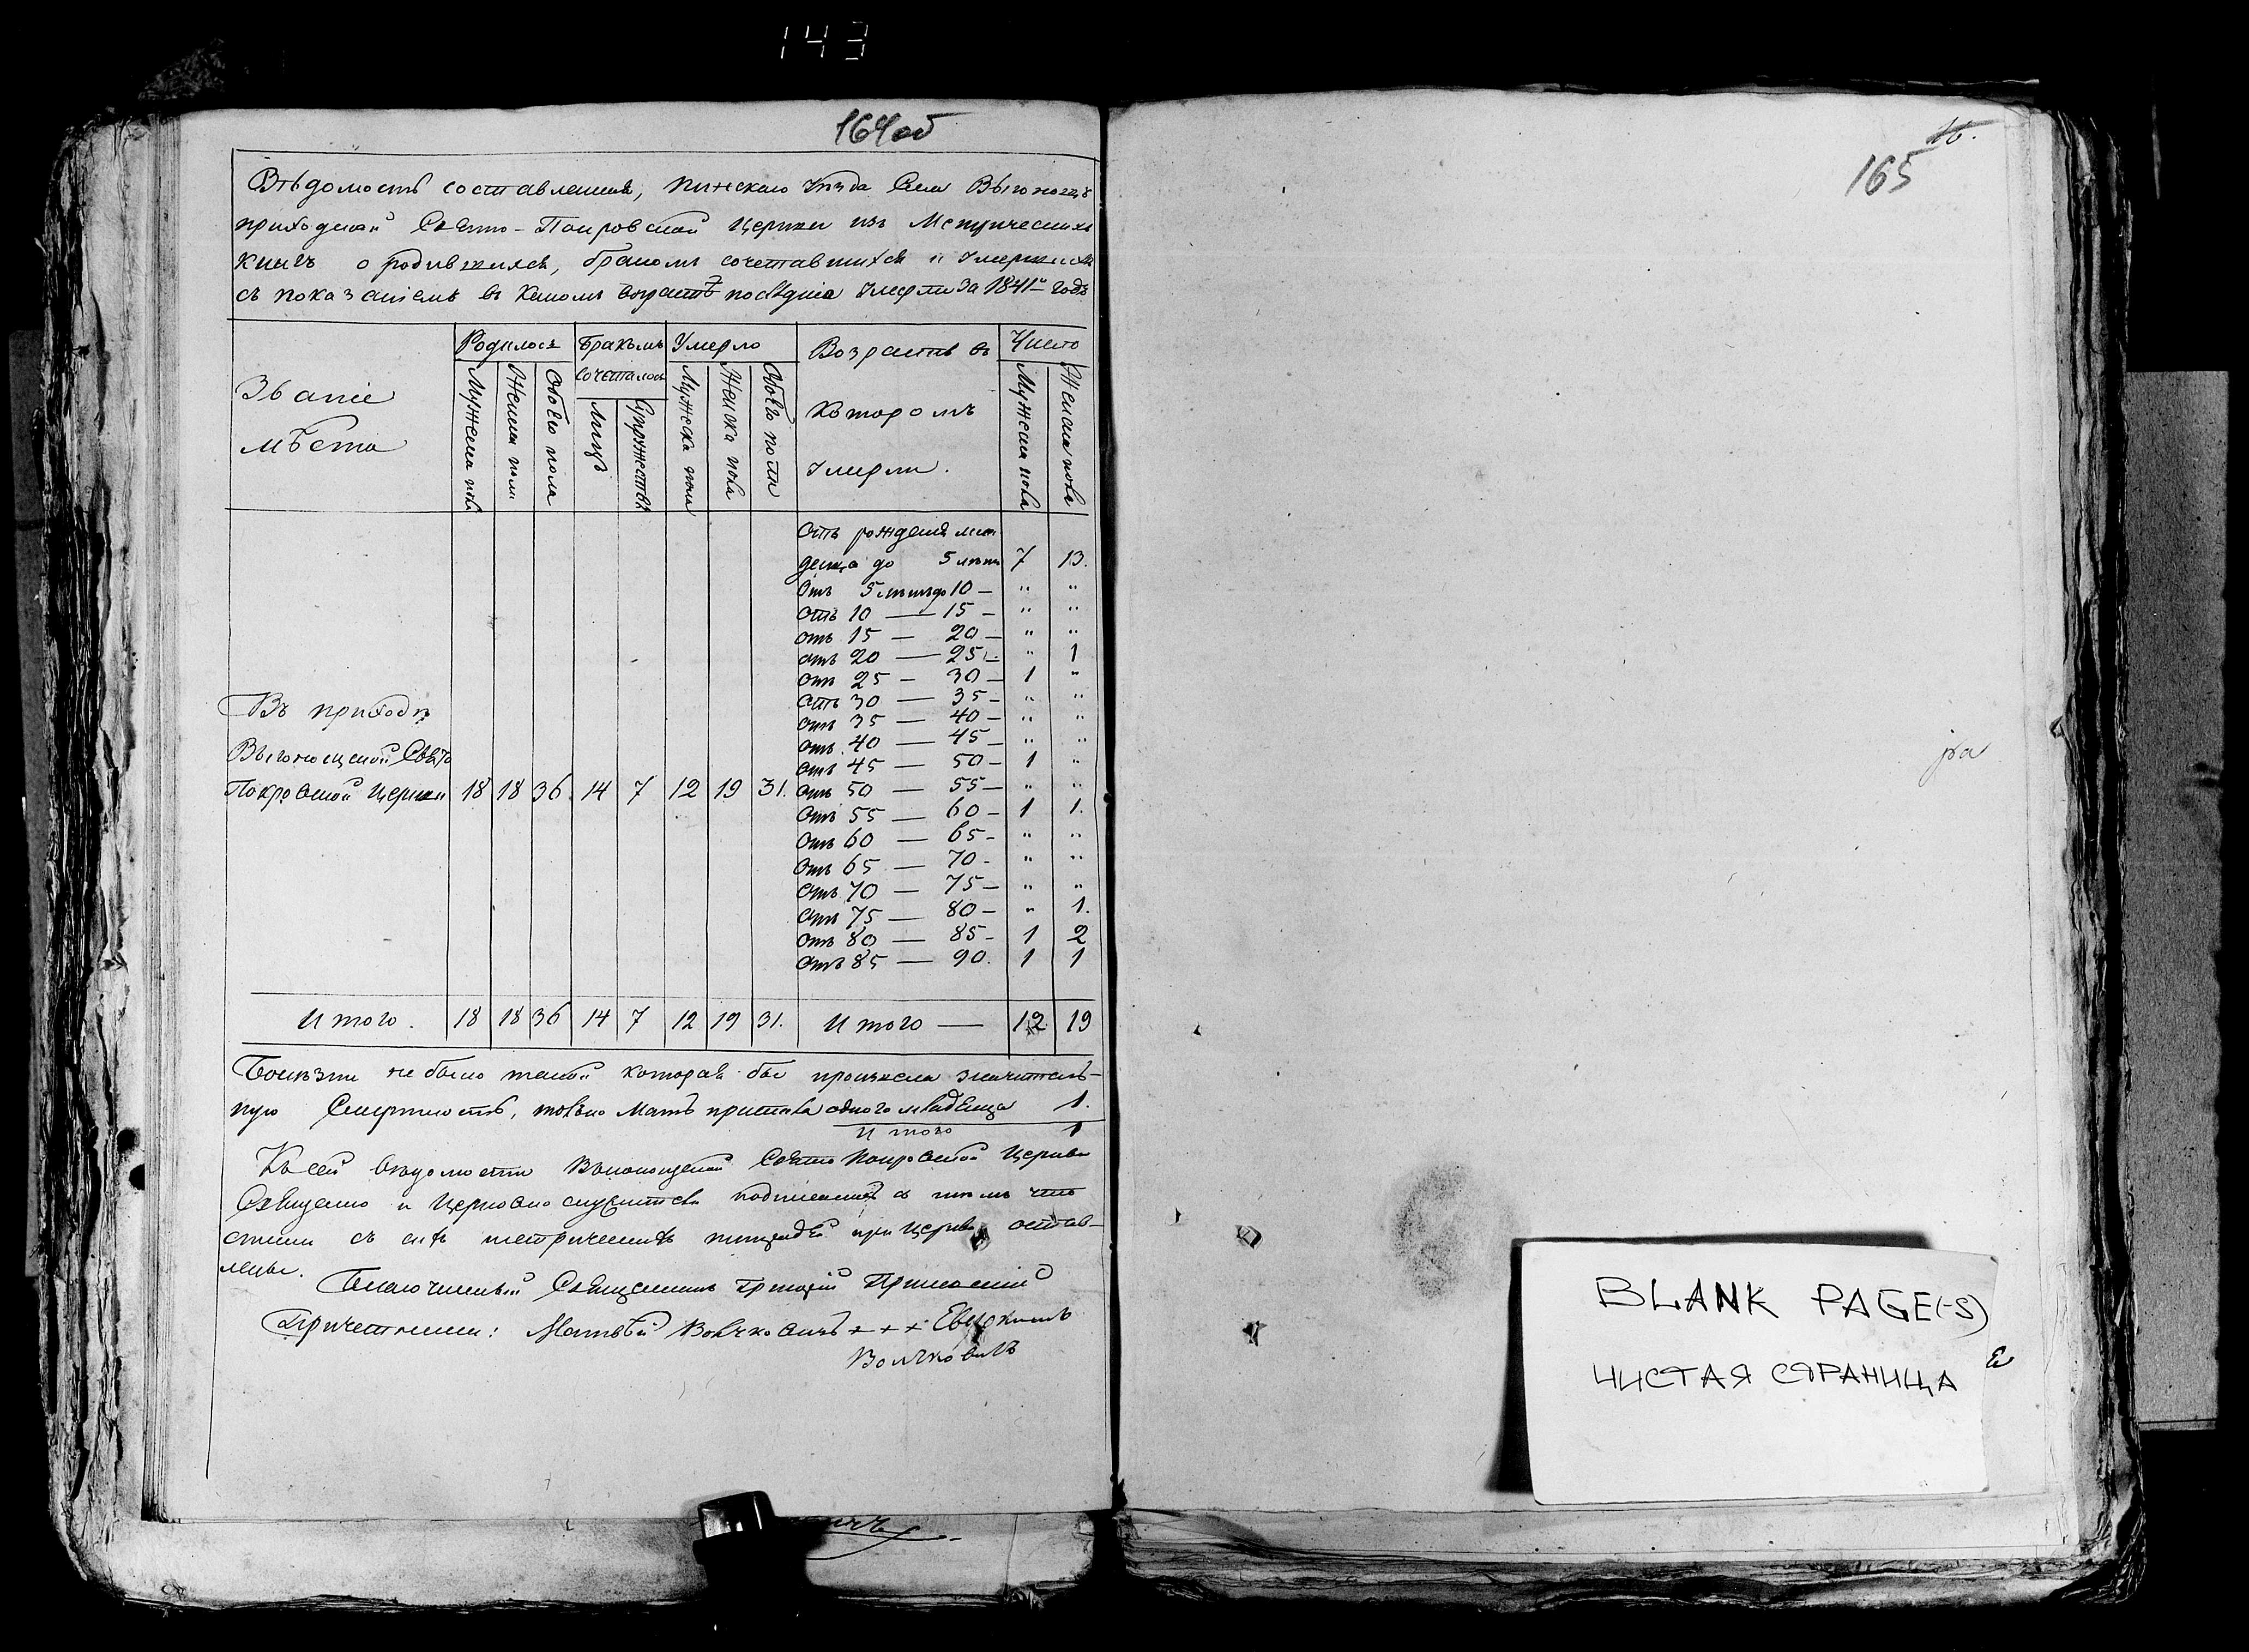 143
164об
Вѣдомость составленная, Пинскаго уѣзда Села Выгонощъ
приходской Свято-Покровской Церкви изъ Метрическихъ
Книгъ о родившихся, бракомъ сочетавшихся и умершихъ
съ показаніемъ въ какомъ возрастѣ послѣдніе умерли за 1841й годъ
Званіе мѣста
Родилось
Мужеска пола
Женска пола
Обоего пола
Бракомъ сочеталось
Лицъ
Супружествъ
Умерло
Мужеска пола
Женска пола
Обоего пола
Возрастъ въ которомъ умерли.
Число
Мужеска пола
Женска пола
Отъ рожденія мла
денца до 5 лѣтъ 7 13.
Отъ 5 лѣтъ до 10 — " "
отъ 10 — 15 — " "
отъ 15 — 20 — " "
отъ 20 — 25 — " 1
отъ 25 — 30 — 1 "
отъ 30 — 35 — " "
отъ 35 — 40 — " "
отъ 40 — 45 — " "
отъ 45 — 50 — 1 "
отъ 50 — 55 — " "
отъ 55 — 60 — 1 1.
отъ 60 — 65 — " "
отъ 65 — 70 — " "
отъ 70 — 75 — " "
отъ 75 — 80 — " 1.
отъ 80 — 85 — 1 2
отъ 85 — 90. 1 1
Въ приходѣ
Выгонощской Свято
Покровской Церкви 18 18 36. 14 7 12 19 31.
Итого. 18 18 36 14 7 12 19 31. Итого — 12 19
Болѣзни не было такой которая бы произвела значитель-
ную смертность, только Мать приспала одного младенца 1.
Итого 1
Къ сей вѣдомости Выгонощской Свято Покровской Церкви
Священно и Церковно служители подписались съ тѣмъ что
съ сихъ метрическихъ при Церкви остав-
лены.
Благочинный Священникъ Григорій
Причетники: Матвѣй Волчковичъ + + + Евдокимъ
Волчковичъ
165
BLANK PAGE(-S)
ЧИСТАЯ СТРАНИЦА